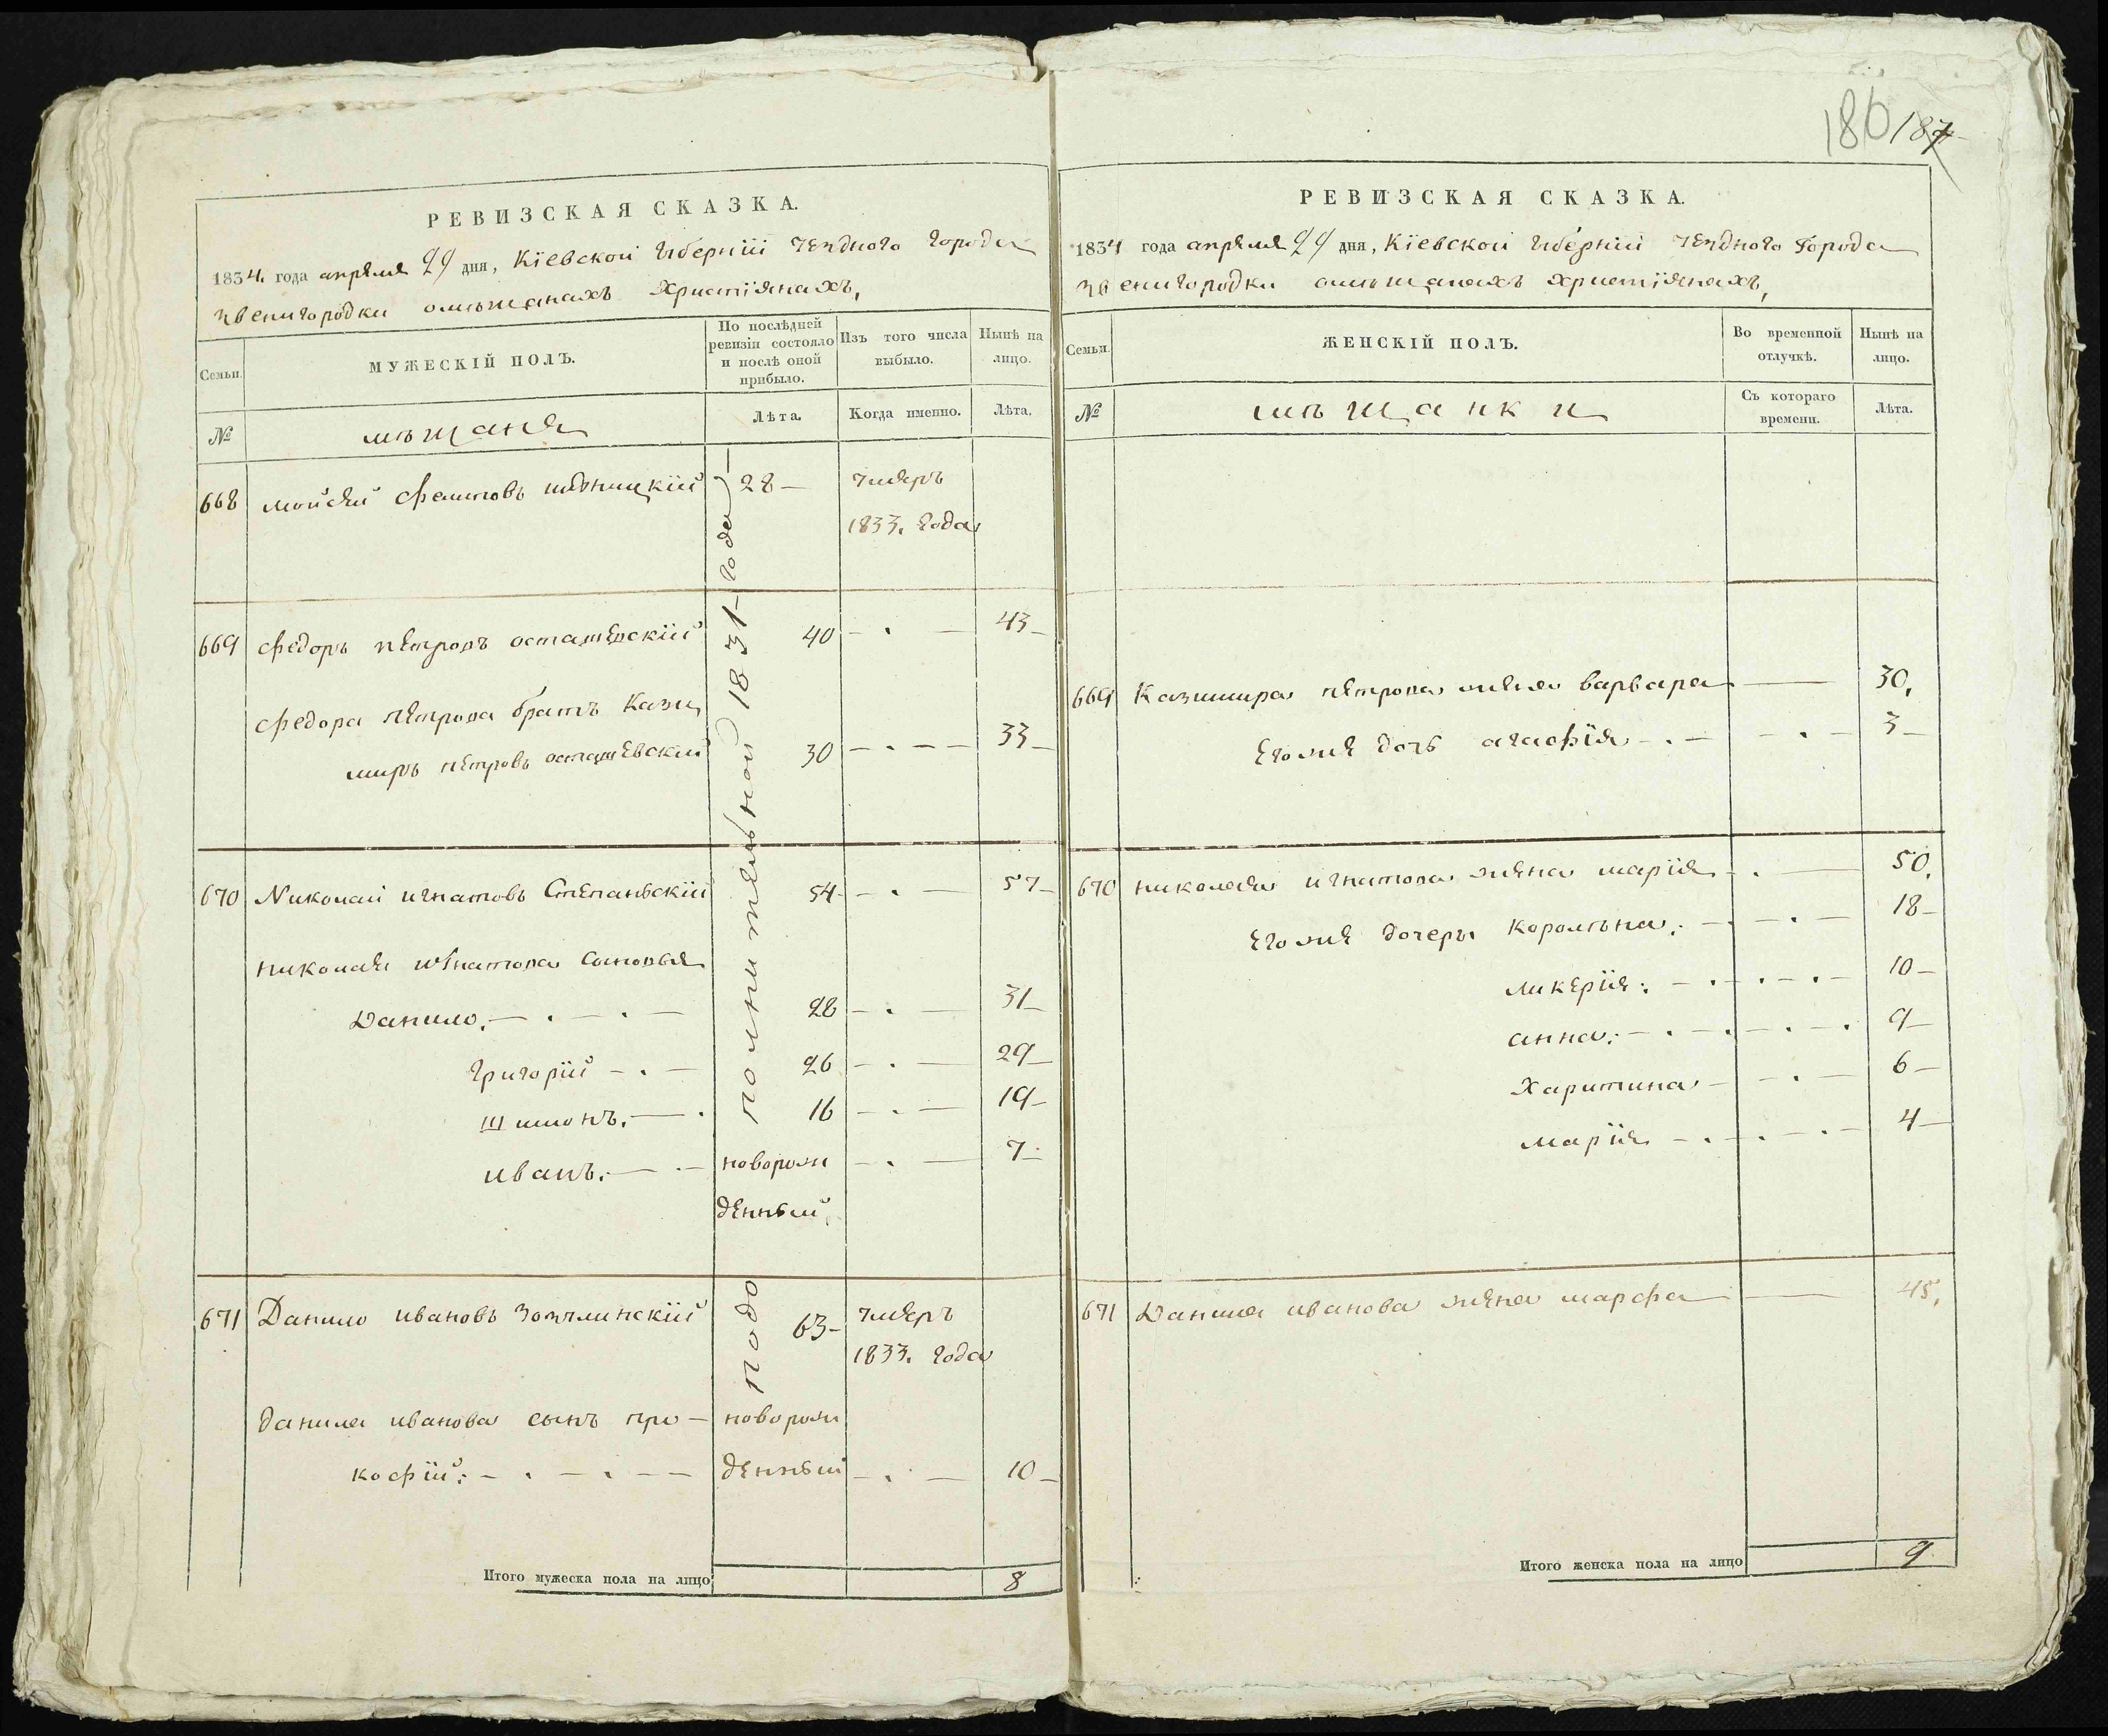 180 187
РЕВИЗСКАЯ СКАЗКА.
1834. года апреля 29 дня, Кіевской Губерніи уезднаго города
звенигородки омѣщанахъ христіянахъ,
Семьи.
МУЖЕСКІЙ ПОЛЪ.
По послѣдней ревизіи состояло и послѣ оной прибыло.
Изъ того числа выбыло.
Нынѣ на лицо.
№
мѣщаня
Лѣта.
Когда именно.
Лѣта.
подополнительной 1831 года
668 Мойсей Феиловъ 28 умеръ
1833. года
669 Федоръ петровъ осташевскій 40 43
Федора петрова братъ Кази
миръ петровъ осташевский 30 33
670 Николай игнатовъ Степаньскій 54 57
николая игнатова сыновья
Данило. 28 31
Григорій 26 29
Шимонъ. 16 19
иванъ. новорож 7
денный
671 Данило ивановъ 63 умеръ
1833. года
данила иванова сынъ про новорож
кофій: денный 10
Итого мужеска пола на лицо 8
РЕВИЗСКАЯ СКАЗКА.
1834 года апреля 29 дня, Кіевской Губерніи уезднаго Города
звенигородки омѣщанахъ христіянахъ,
Семьи.
ЖЕНСКІЙ ПОЛЪ.
Во временной отлучкѣ.
Нынѣ на лицо.
№
мѣщанки
Съ котораго времени.
Лѣта.
669 Казимира петрова жена варвара 30.
Его же дочь агафія 3
670 николая игнатова жена марія 50.
Его же дочеры Корольна: 18
ликерія: 10
анна: 9
Харитина 6
марія 4
671 Данила иванова жена марфа 45.
Итого женска пола на лицо 9